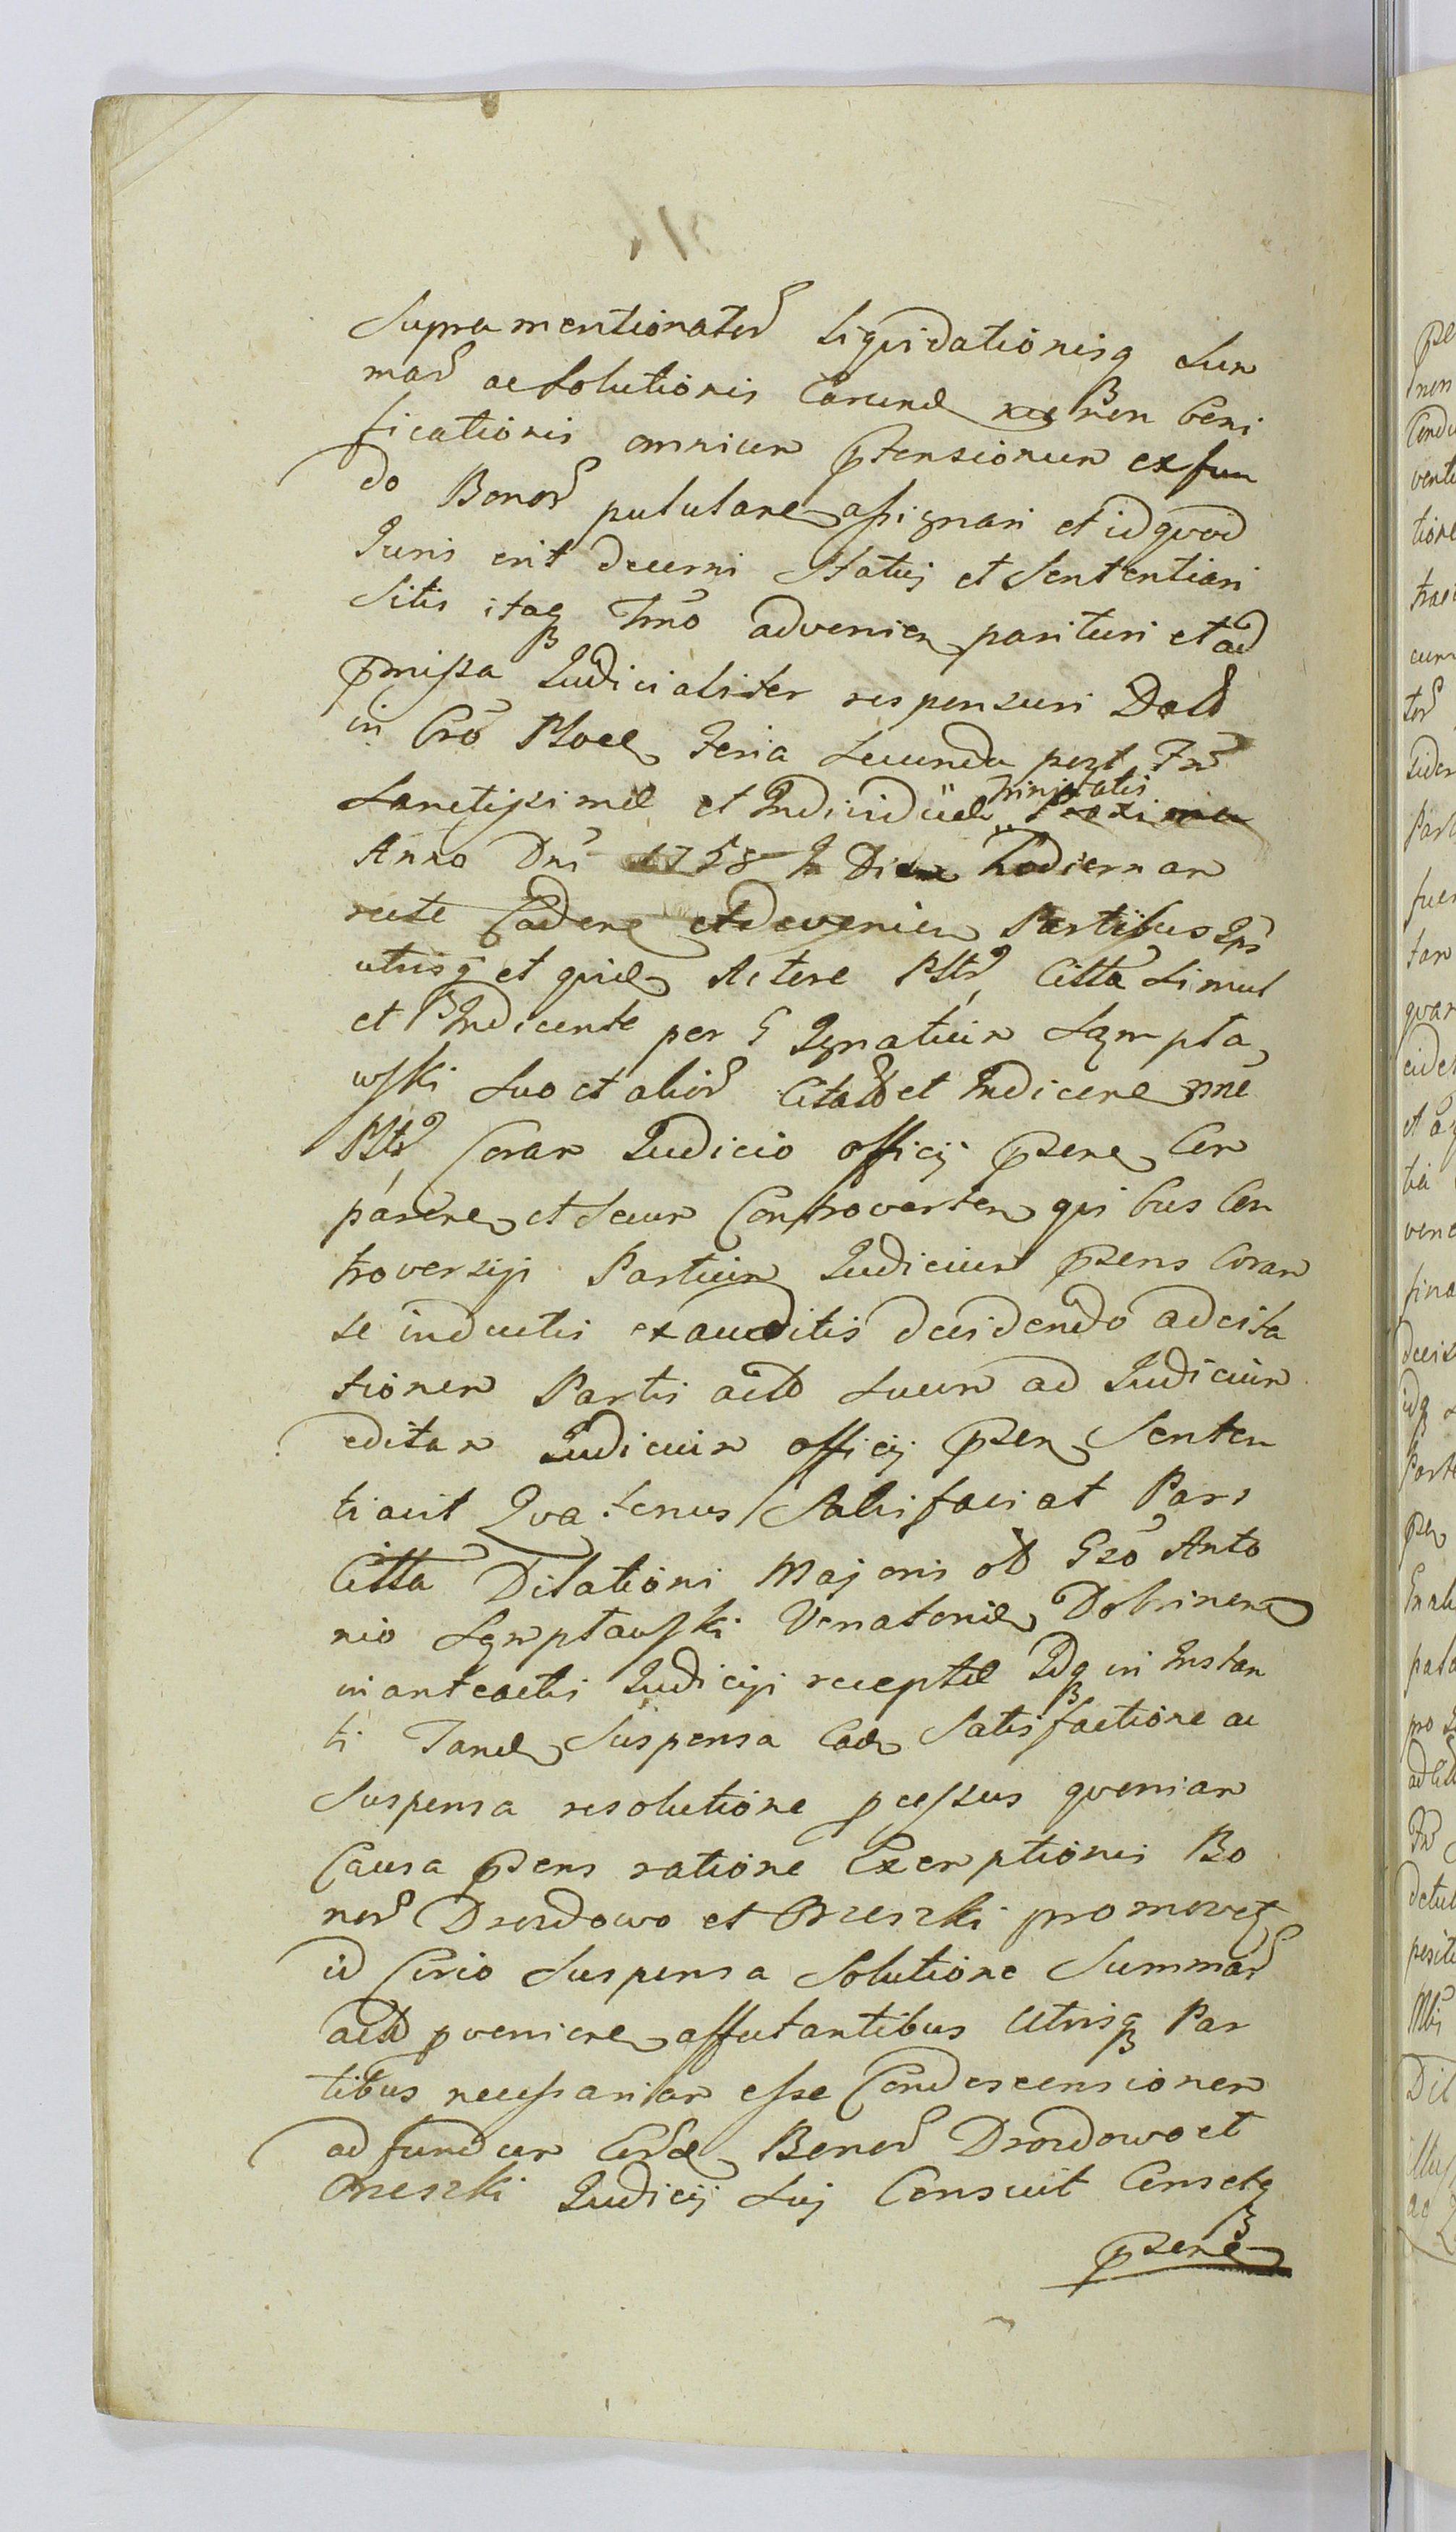 Supra mentionator Liquidationisq Sum
mar ac Solutionis Earund nec non boni
ficationis omnium ptensionum ex fun
do Bonor pululare assignari et id quod
Juris erit decerni Statuj et Sententiari
Sitis itaq Tmo advenien parituri et ad
pmissa Judicialiter responsuri Datt
in Cro Ploce Feria Secunda post Fm
Sanctissimae et Individuae Trinitatis Proxima
Anno Dni 1758 In Diem hodiernam
recte Cadene et devenien Partibus Ips
utrisq et quid Actore Pltr Citta Simul
et Indicente per G Ignatium Sqmpta
wski Suo et alior Citatt et Indicene nne
Pltr Coram Judicio officij psene Com
parene et Secum Controverten quibus Con
troversijs Partium Judicium psens Coram
se inductis exauditis decidendo ad cita
tionem Partis actt Suum ad Judicium
editam Judicium officij psen Senten
tiavit Quatenus Satisfaciat Pars
Citta Dilationi Majoris ob Gso Anto
nio Sqmptawski Venatorid Dobrinen
in anteactis Judicijs receptae Idq in Instan
ti Tand Suspensa Ead Satisfactione ac
Suspensa resolutione pcessus quoniam
Causa psens ratione Exemptionis Bo
nor Drozdowo et Orzeszki promovetz
id Circo Suspensa Solutione Summar
actt pvenire affectantibus Utrisq Par
tibus necessariam esse Condescensionem
ad fundum Eord Bonor Drozdowo et
Orzeszki Judicij Suj Censuit Censetq
psene